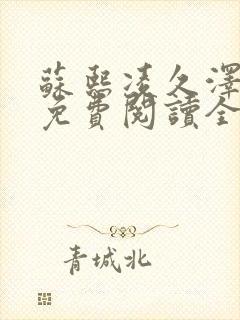 蘇熙凌久澤
免費閱讀全
青城北